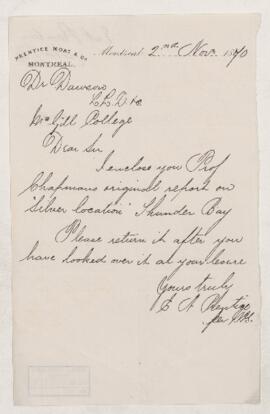 PRENTICE MOAT & Co
MONTREAL.
Montreal 2nd Novr 1870
Dr Dawson
LL.D &c
McGill College
Dear Sir
I enclose you Prof
Chapmans original report on
"Silver location" Thunder Bay
Please return it after you
have looked over it at your lesure
Yours truly
E A Prentice
per